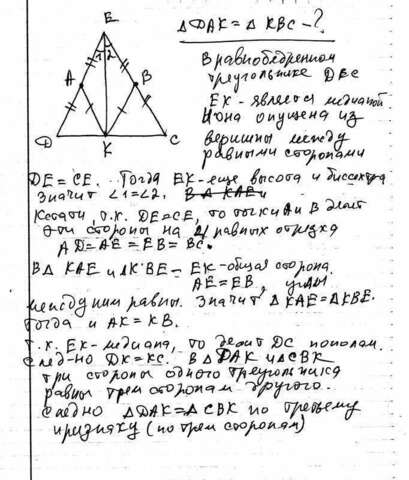 E
ΔDAK = ΔKBC - ?
1 2
A
B
D
K
C
В равнобедренном
треугольнике DEC
EK - является медианой
и она опущена из
вершины между
равными сторонами
DE = CE. Тогда EK - еще высота и биссектриса
Значит ∠1=∠2. В Δ KAE и
Кстати, т.к. DE=CE, то точки A и B делят
эти стороны на 4 равных отрезка
AD = AE = EB = BC.
В Δ KAE и ΔKBE - EK - общая сторона.
AE = EB, углы
между ними равны. Значит ΔKAE=ΔKBE.
Тогда и AK = KB.
Т.к. EK - медиана, то делит DC пополам.
След-но DK = KC. В ΔDAK и ΔCBK
три стороны одного треугольника
равны трем сторонам другого.
следно ΔDAK = ΔCBK по третьему
признаку (по трем сторонам)